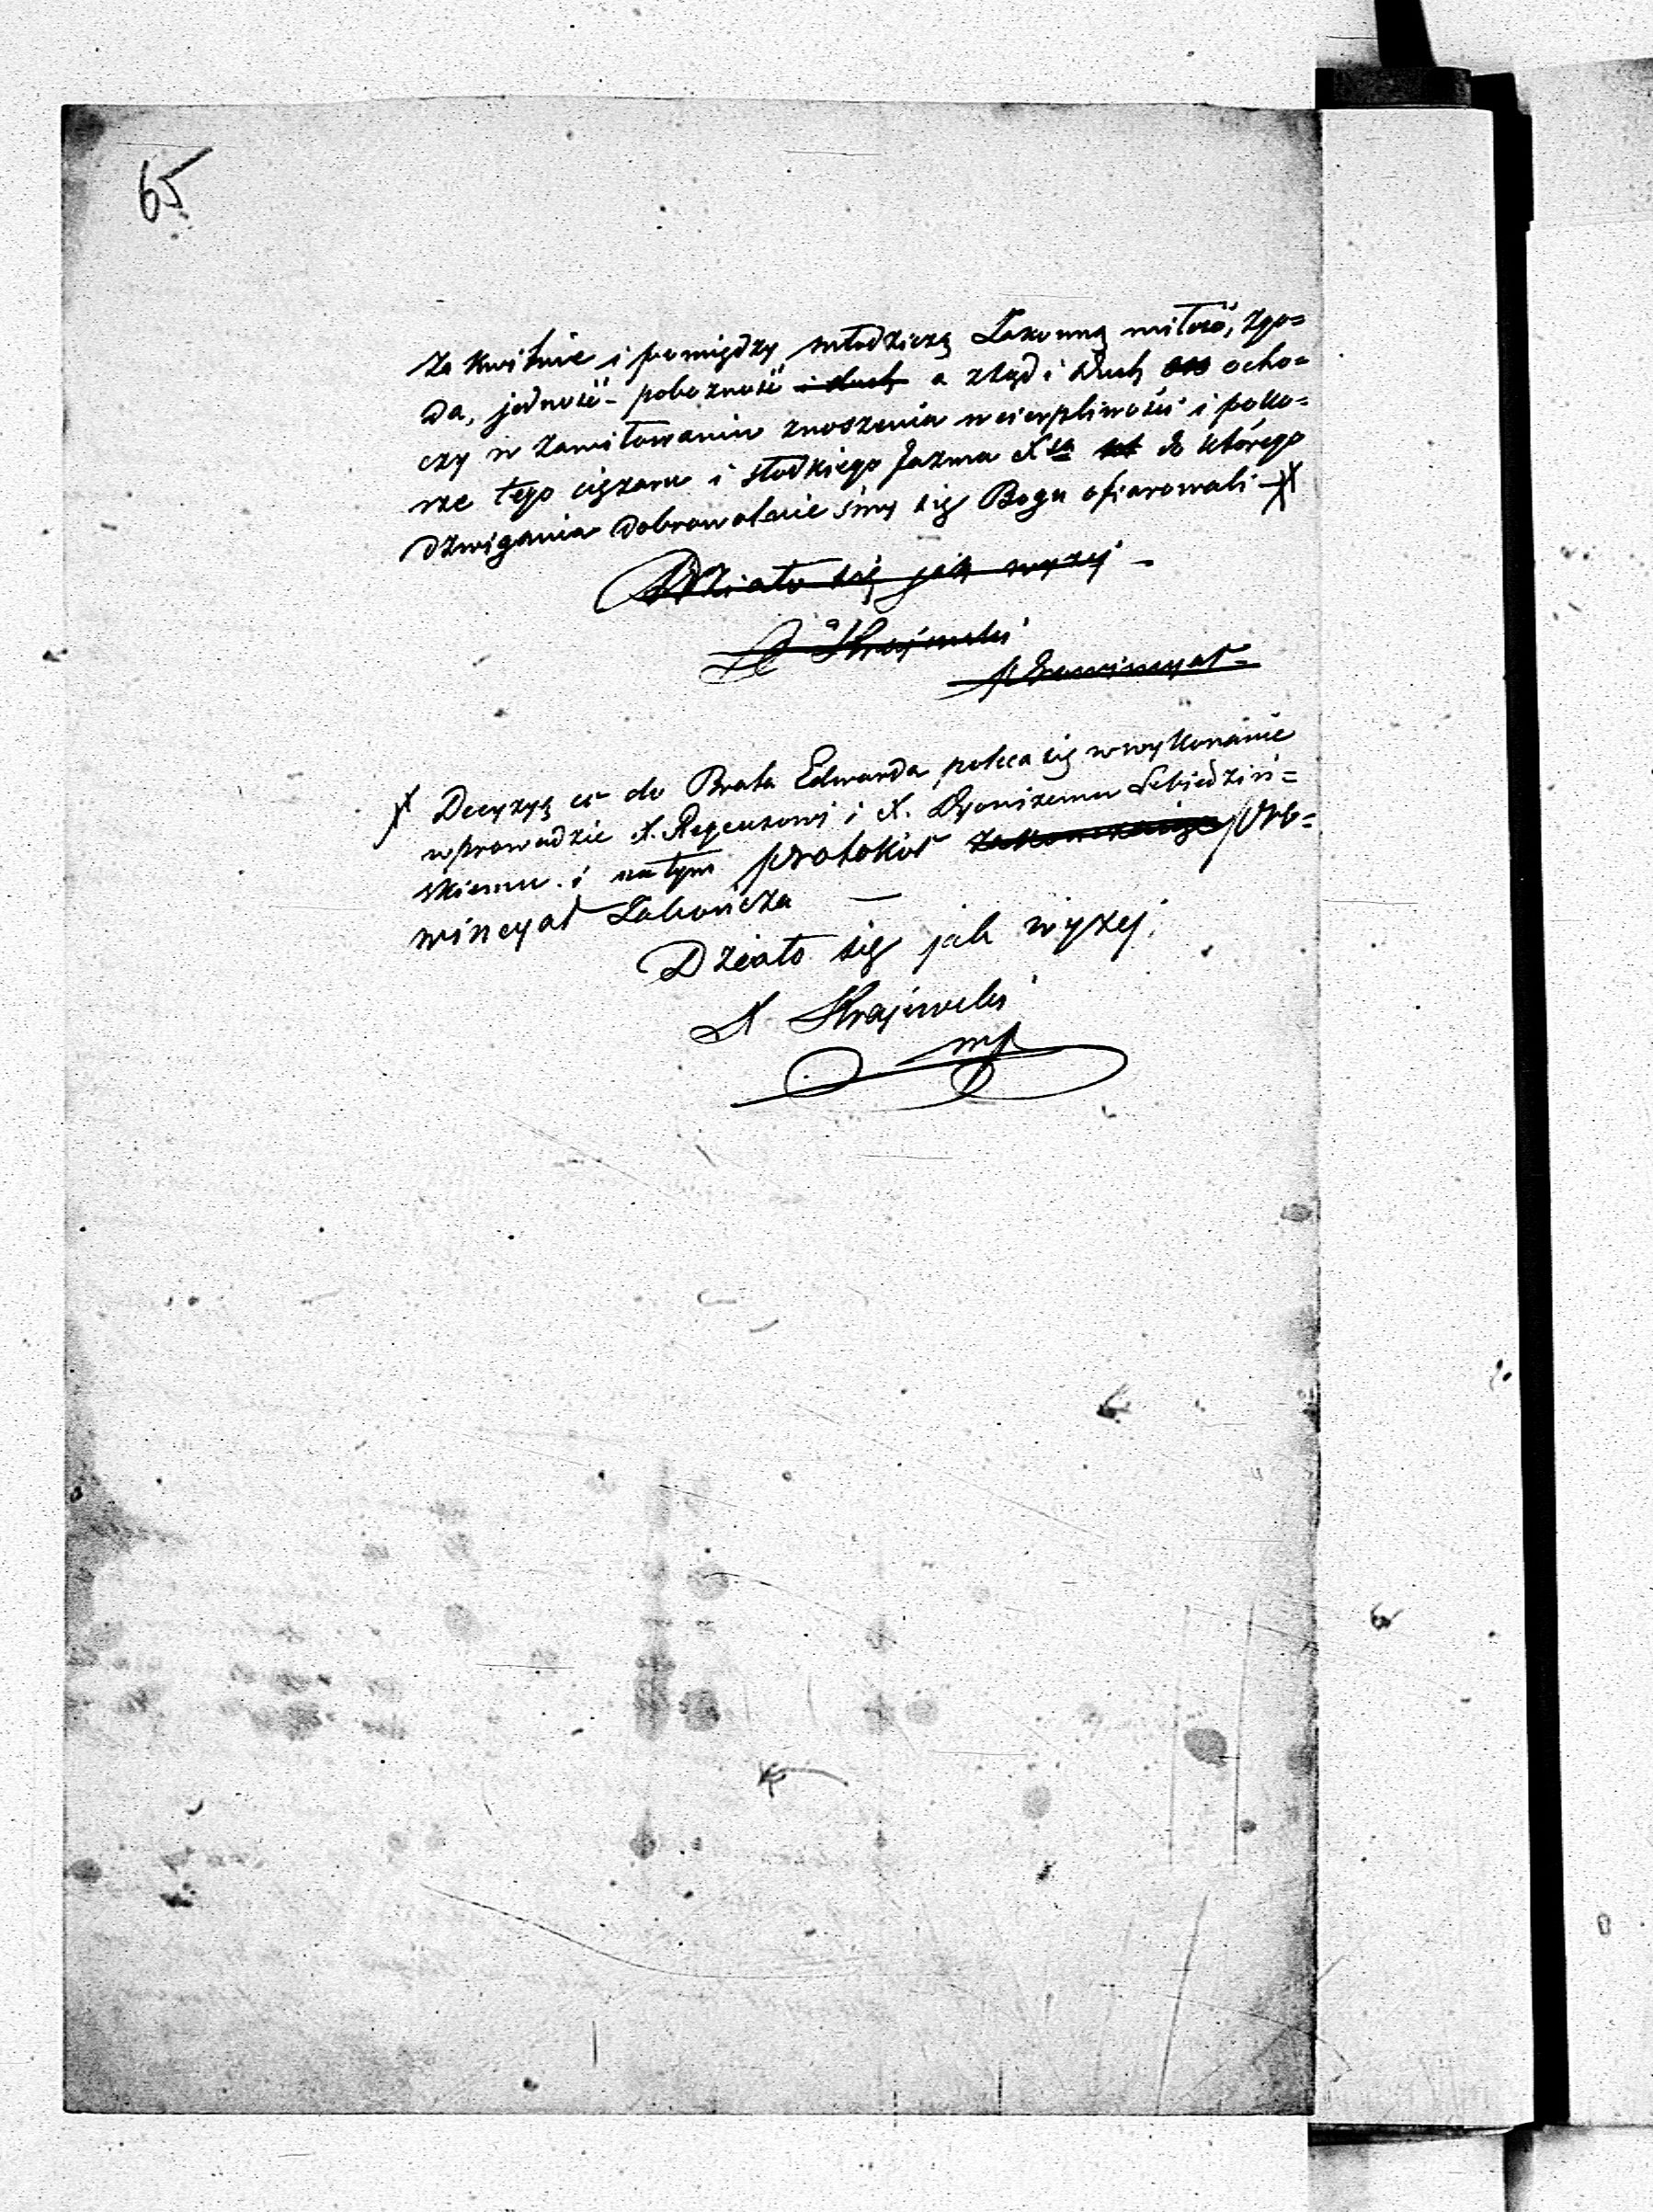 65
Za Kwitnie i pomiędzy młodzieżą Zakonną miłość, zgo=
da, jedność - pobożność i duch a ztąd i duch ocho=
czy w zamiłowaniu znoszenia w cierpliwości i poko=
rze tego ciężaru i słodkiego Jazma Xsa do którego
dzwigania dobrowolnie śmy się Bogu ofiarowali
Działo się jak wyżej -
X Krajewski
Prowincyał -
X Decyzyą co do Brata Edwarda poleca się w wykonanie
wprowadzić X. Regensowi i X. Dyonizemu Lebiedziń=
skiemu i na tym protokół Pro=
wincyał Zakończa —
Działo się jak wyżej.
X Krajewski
mp